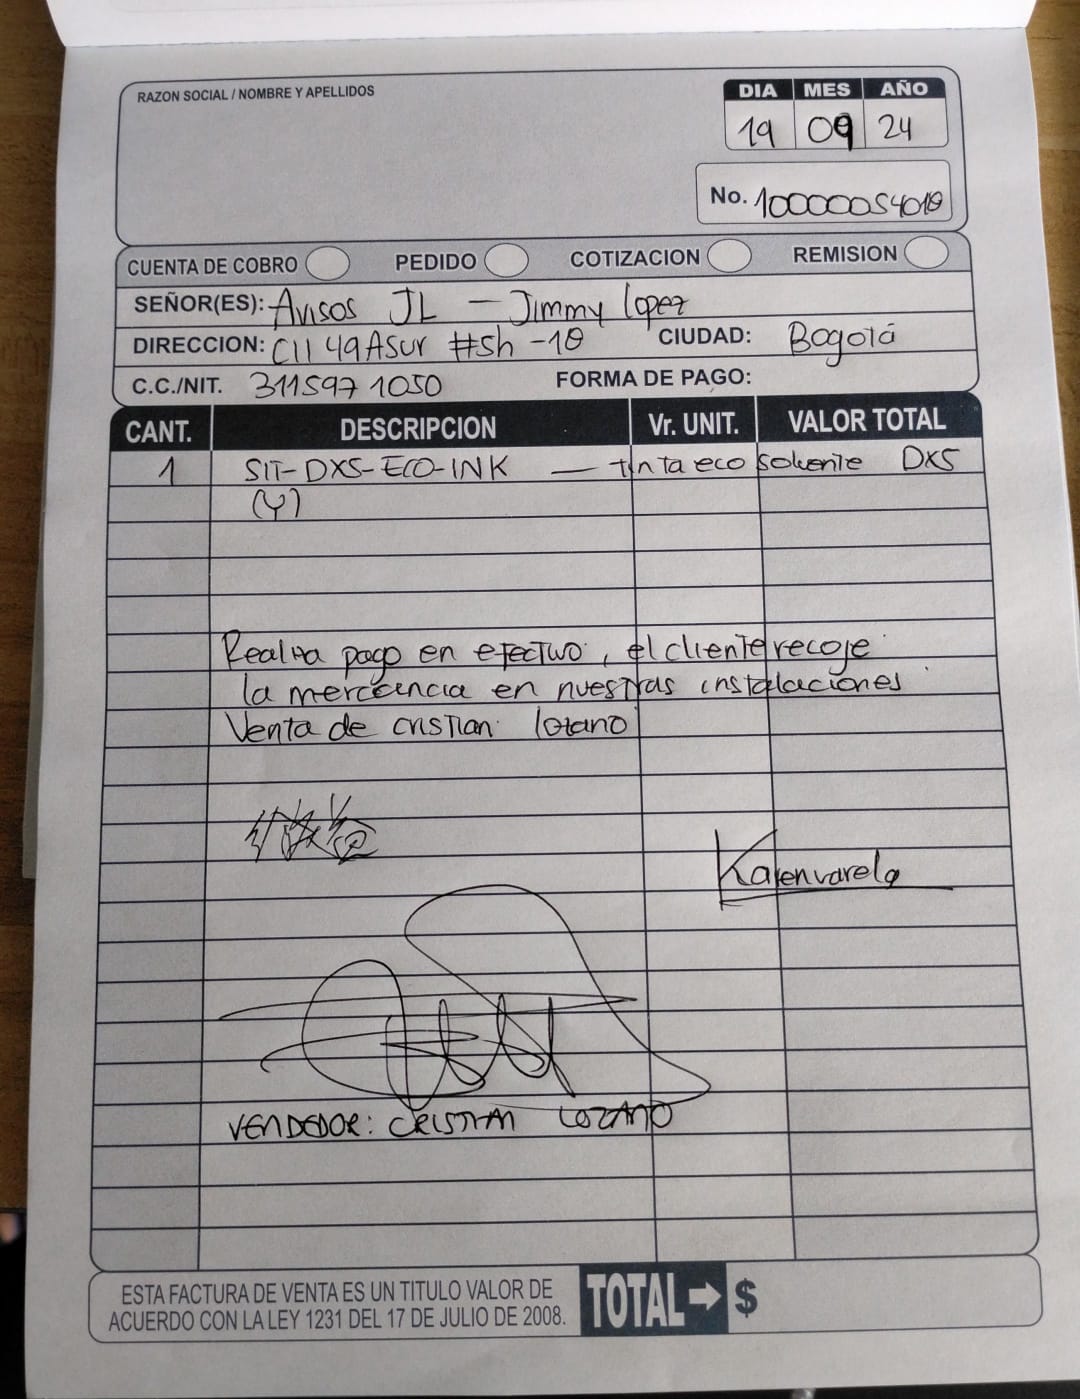 RAZON SOCIAL / NOMBRE Y APELLIDOS
DIA MES AÑO
19 09 24
No. 10000054018
CUENTA DE COBRO PEDIDO COTIZACION REMISION
SEÑOR(ES): Avisos JL - Jimmy lopez
DIRECCION: Cll 49A Sur #5h - 18 CIUDAD: Bogotá
C.C./NIT. 311597 1050 FORMA DE PAGO:
CANT. DESCRIPCION Vr. UNIT. VALOR TOTAL
1 SIT-DXS-ECO-INK — tinta eco solvente DXS
(Y)
Realiza pago en efectivo, el cliente recoje
la mercancia en nuestras instalaciones
Venta de cristian lozano
Karenvarela
VENDEDOR: CRISTIAN LOZANO
ESTA FACTURA DE VENTA ES UN TITULO VALOR DE
ACUERDO CON LA LEY 1231 DEL 17 DE JULIO DE 2008.
TOTAL → $